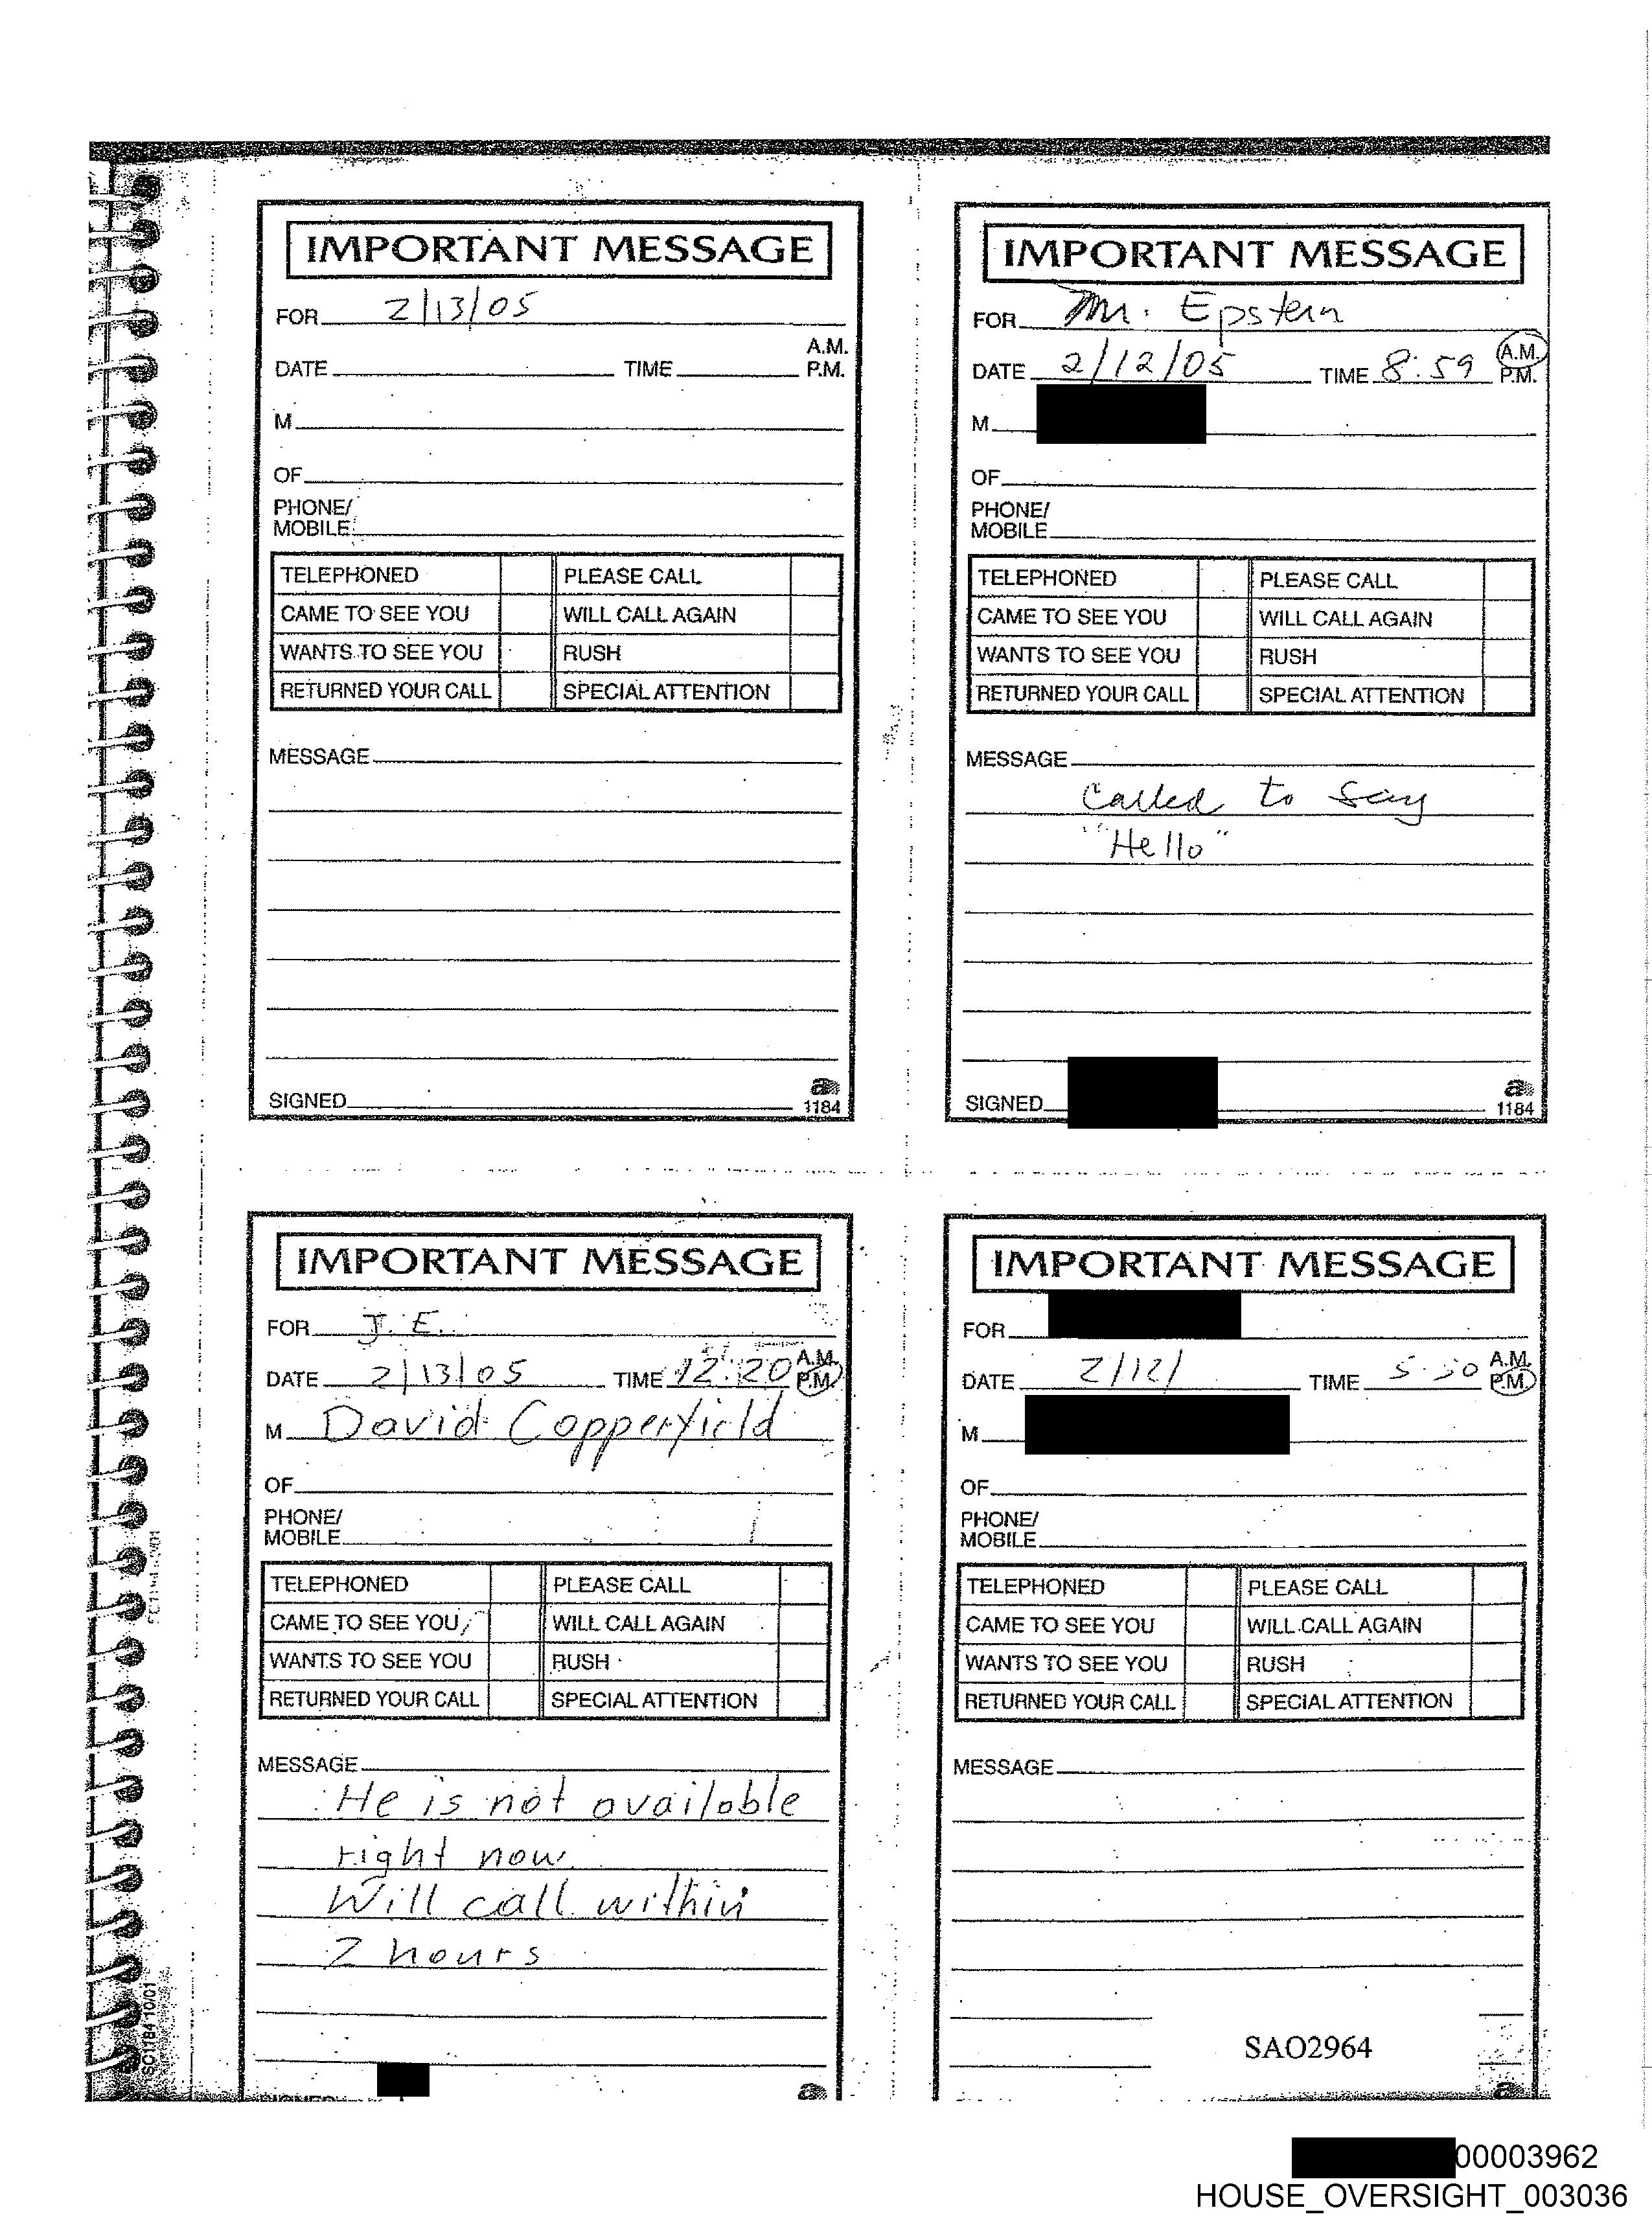 IMPORTANT MESSAGE
FOR 2/13/05
DATE TIME A.M. P.M.
M
OF
PHONE/
MOBILE
TELEPHONED PLEASE CALL
CAME TO SEE YOU WILL CALL AGAIN
WANTS TO SEE YOU RUSH
RETURNED YOUR CALL SPECIAL ATTENTION
MESSAGE
SIGNED
a
1184
IMPORTANT MESSAGE
FOR Mr. Epstein
DATE 2/12/05 TIME 8:59 A.M. P.M.
M
OF
PHONE/
MOBILE
TELEPHONED PLEASE CALL
CAME TO SEE YOU WILL CALL AGAIN
WANTS TO SEE YOU RUSH
RETURNED YOUR CALL SPECIAL ATTENTION
MESSAGE
Called to say
"Hello"
SIGNED
a
1184
IMPORTANT MESSAGE
FOR J.E.
DATE 2/13/05 TIME 12:20 A.M. P.M.
M David Copperfield
OF
PHONE/
MOBILE
TELEPHONED PLEASE CALL
CAME TO SEE YOU WILL CALL AGAIN
WANTS TO SEE YOU RUSH
RETURNED YOUR CALL SPECIAL ATTENTION
MESSAGE
He is not available
right now.
Will call within
2 hours
a
SC1184 10/01
IMPORTANT MESSAGE
FOR
DATE 2/12/ TIME A.M. P.M.
M
OF
PHONE/
MOBILE
TELEPHONED PLEASE CALL
CAME TO SEE YOU WILL CALL AGAIN
WANTS TO SEE YOU RUSH
RETURNED YOUR CALL SPECIAL ATTENTION
MESSAGE
SAO2964
a
00003962
HOUSE_OVERSIGHT_003036